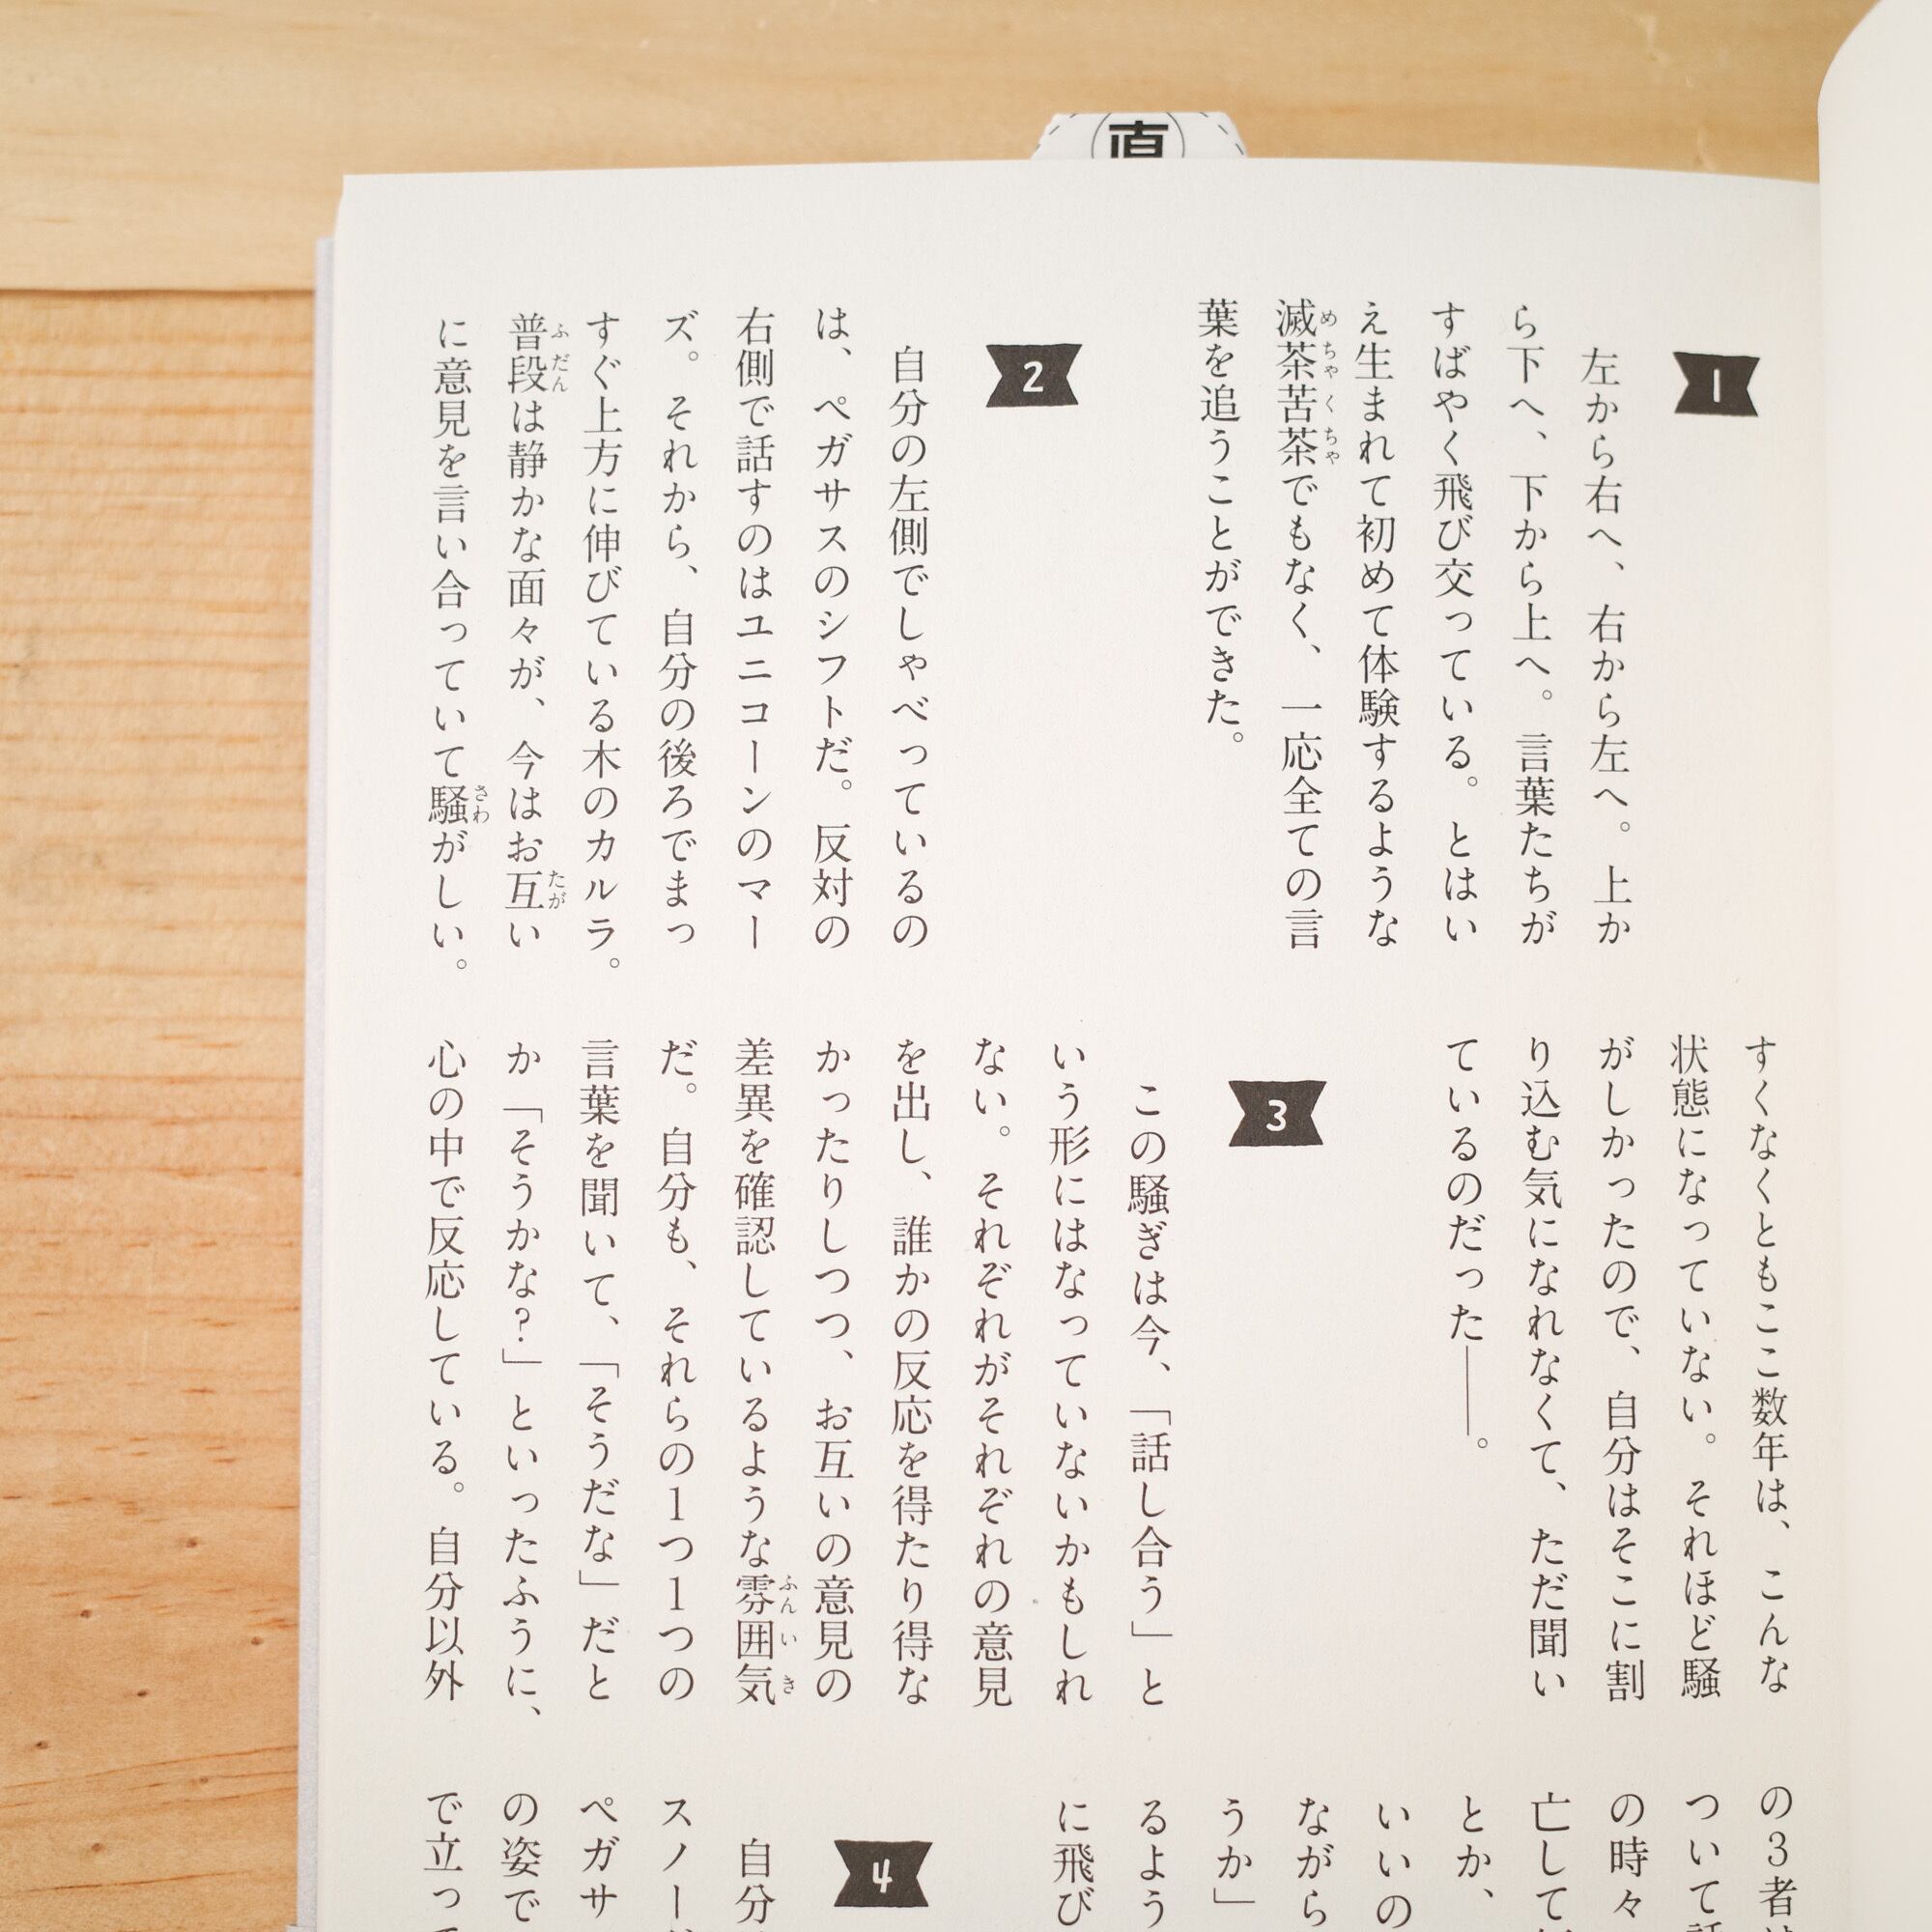 直
1
左から右へ、右から左へ。上か
ら下へ、下から上へ。言葉たちが
すばやく飛び交っている。とはい
え生まれて初めて体験するような
滅茶苦茶でもなく、一応全ての言
葉を追うことができた。
2
自分の左側でしゃべっているの
は、ペガサスのシフトだ。反対の
右側で話すのはユニコーンのマー
ズ。それから、自分の後ろでまっ
すぐ上方に伸びている木のカルラ。
普段は静かな面々が、今はお互い
に意見を言い合っていて騒がしい。
すくなくともここ数年は、こんな
状態になっていない。それほど騒
がしかったので、自分はそこに割
り込む気になれなくて、ただ聞い
ているのだった――。
3
この騒ぎは今、「話し合う」と
いう形にはなっていないかもしれ
ない。それぞれがそれぞれの意見
を出し、誰かの反応を得たり得な
かったりしつつ、お互いの意見の
差異を確認しているような雰囲気
だ。自分も、それらの1つ1つの
言葉を聞いて、「そうだな」だと
か「そうかな?」といったふうに、
心の中で反応している。自分以外
の3者は
ついて話
の時々
亡して
とか、
いいの
ながら
うか」
るよう
に飛び
4
自分
スノー
ペガサ
の姿で
で立って